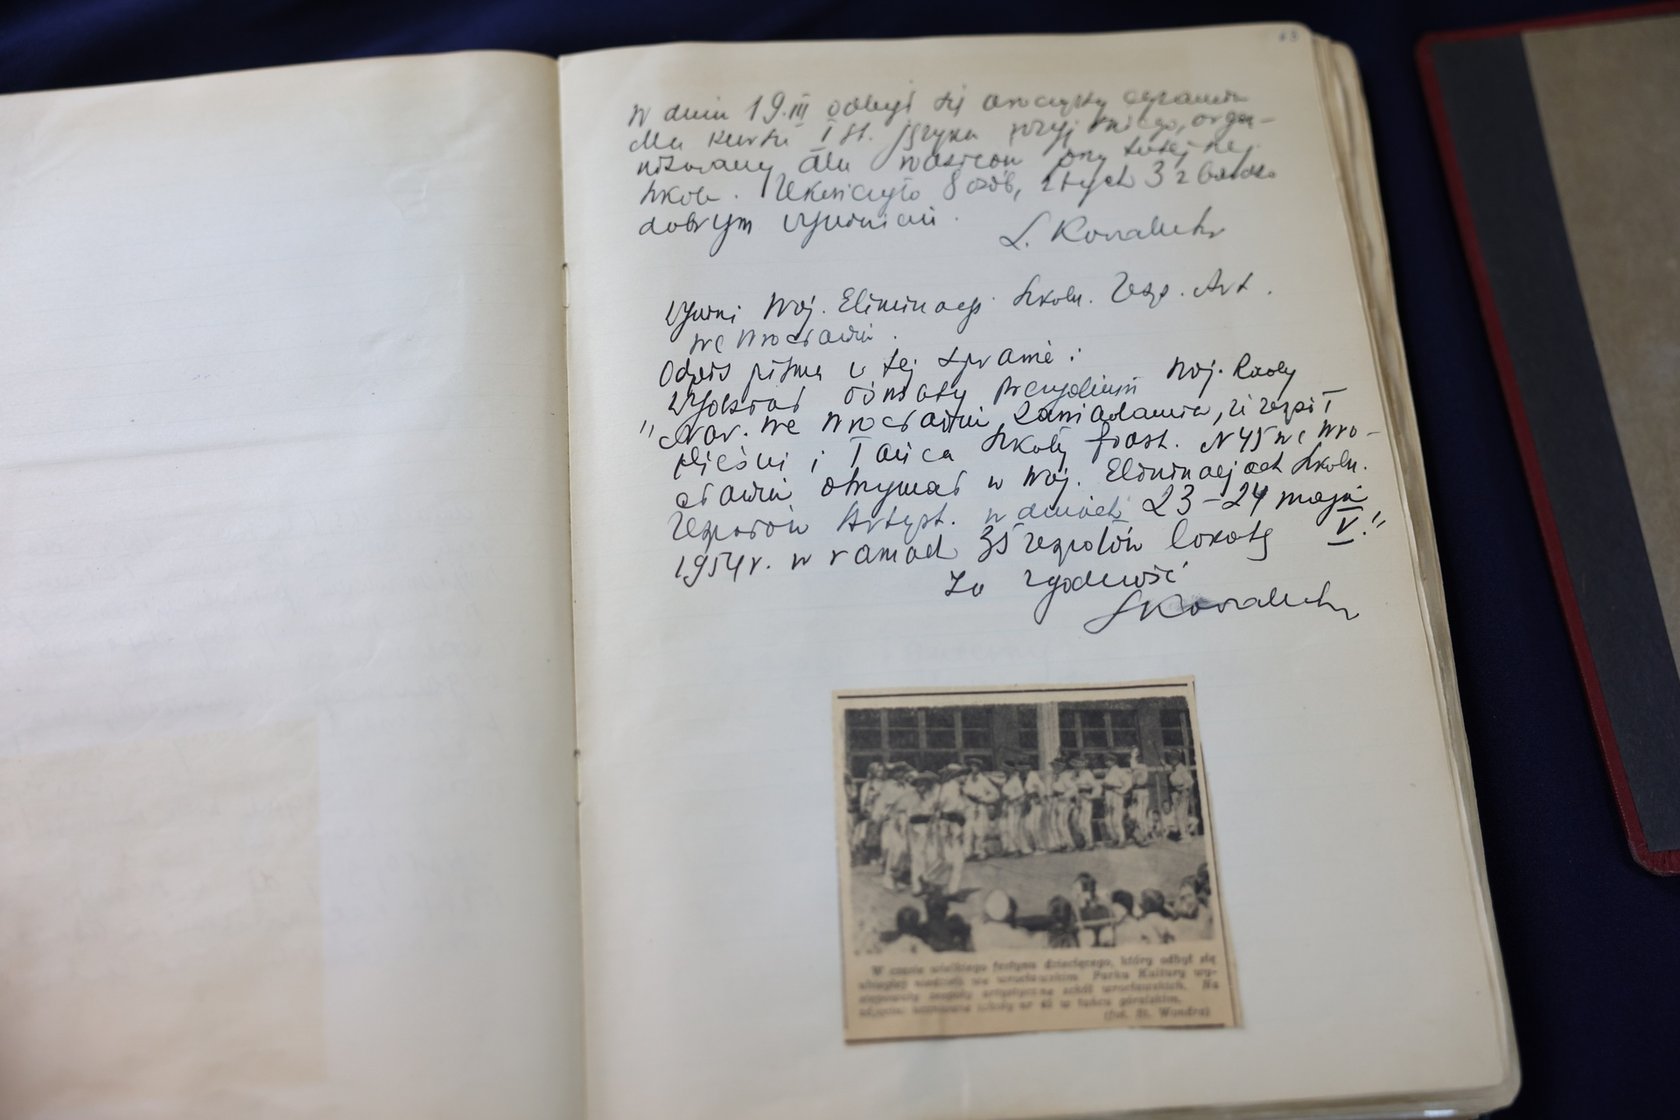 63
W dniu 19.III odbył się uroczysty egzamin
dla kursu I st. języka, orga-
nizowany dla przy tutejszej
szkole. Ukończyło 8 osób, z tych 3 z bardzo
dobrym wynikiem.
L. Kowalucka
Wyniki Woj. Eliminacji Szkoln. Zesp. Art.
we Wrocławiu.
Odpis pisma w tej sprawie:
"Wydział Oświaty Prezydium Woj. Rady
Nar. we Wrocławiu zawiadamia, że zespół
Pieśni i Tańca Szkoły Podst. N 45 we Wro-
cławiu otrzymał w Woj. Eliminacjach Szkoln.
Zespołów Artyst. w dniach 23-24 maja
1954r. w ramach 35 zespołów lokatę V."
Za zgodność
LKowalucka
W czasie wielkiego festynu dziecięcego, który odbył się
ubiegłej niedzieli we wrocławskim Parku Kultury wy-
stępowały zespoły artystyczne szkół wrocławskich. Na
zdjęciu: uczniowie szkoły nr 45 w tańcu góralskim.
(fot. St. Wondra)